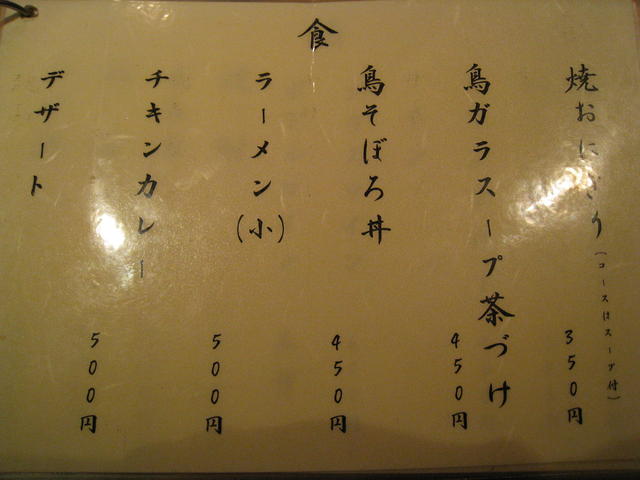 食
焼おにぎり(コースはスープ付)
350円
鳥ガラスープ茶づけ
450円
鳥そぼろ丼
450円
ラーメン(小)
500円
チキンカレー
500円
デザート